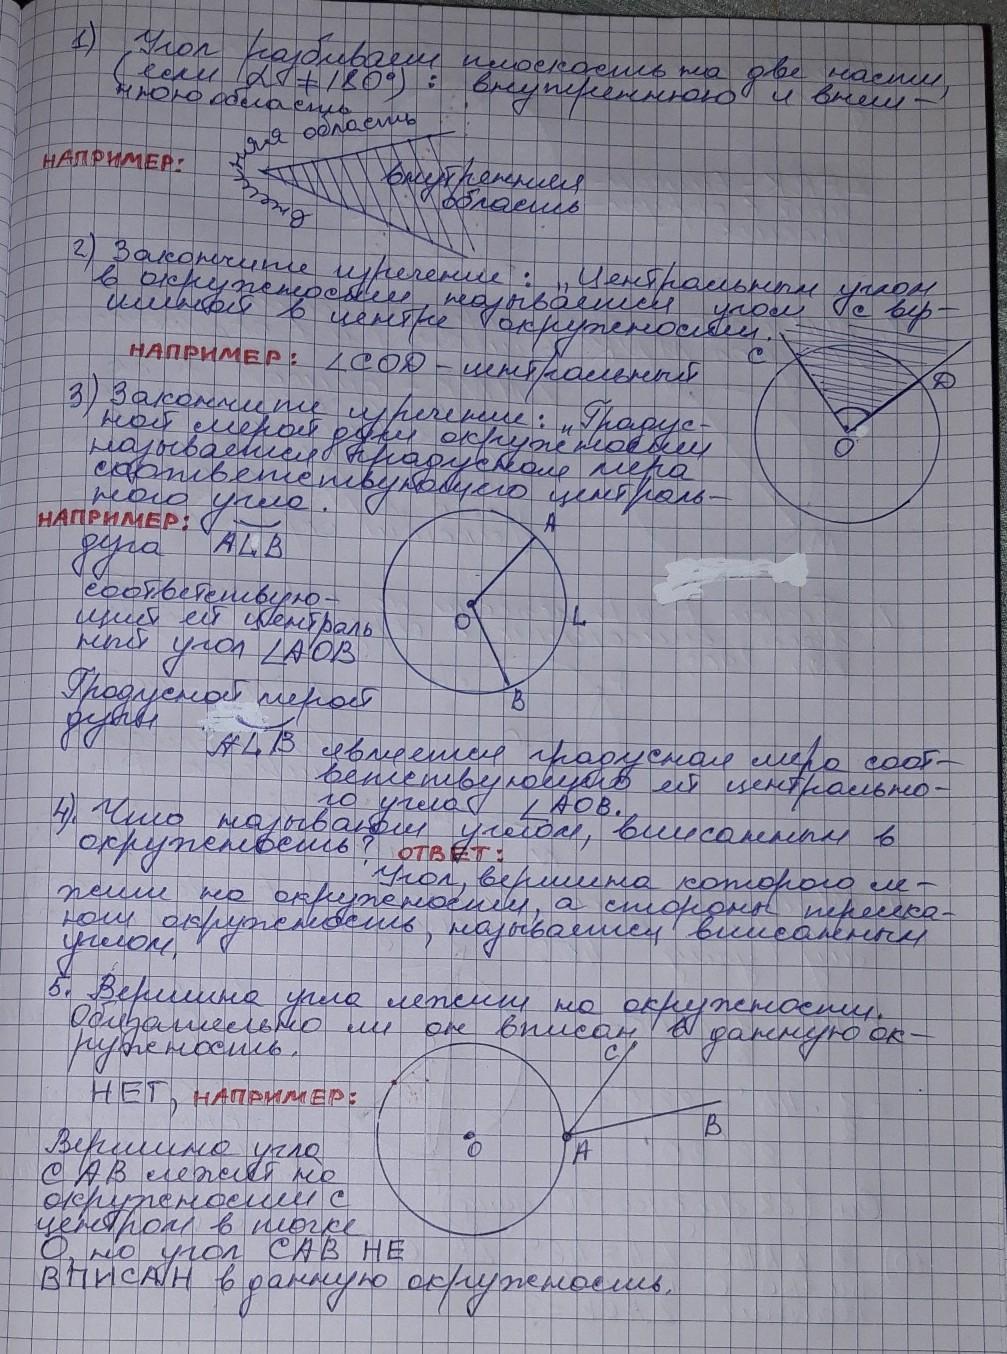 1) Угол разбивает плоскость на две части,
(если ≠ 180°): внутреннюю и внеш-
нюю область
НАПРИМЕР:
внешняя область
внутренняя
область
2) Закончите изречение: „Центральным углом
в окружности называется угол с вер-
шиной в центре окружности.
НАПРИМЕР: ∠COD – центральный
C
D
O
3) Закончите изречение: „Градус-
ной мерой дуги окружности
называется градусная мера
соответствующего централь-
ного угла.
НАПРИМЕР:
дуга ALB
соответствую-
щий ей централь
ный угол ∠AOB
A
O
L
B
Градусной мерой
дуги
ALB является градусная мера соот-
ветствующего ей центрально-
го угла ∠AOB.
4). Что называют углом, вписанным в
окружность? ОТВЕТ:
Угол, вершина которого ле-
жит на окружности, а стороны пересека-
ют окружность, называется вписанным
углом.
5. Вершина угла лежит на окружности.
Обязательно ли он вписан в данную ок-
ружность.
НЕТ, НАПРИМЕР:
C
B
A
O
Вершина угла
CAB лежит на
окружности с
центром в точке
O, но угол CAB НЕ
ВПИСАН в данную окружность.